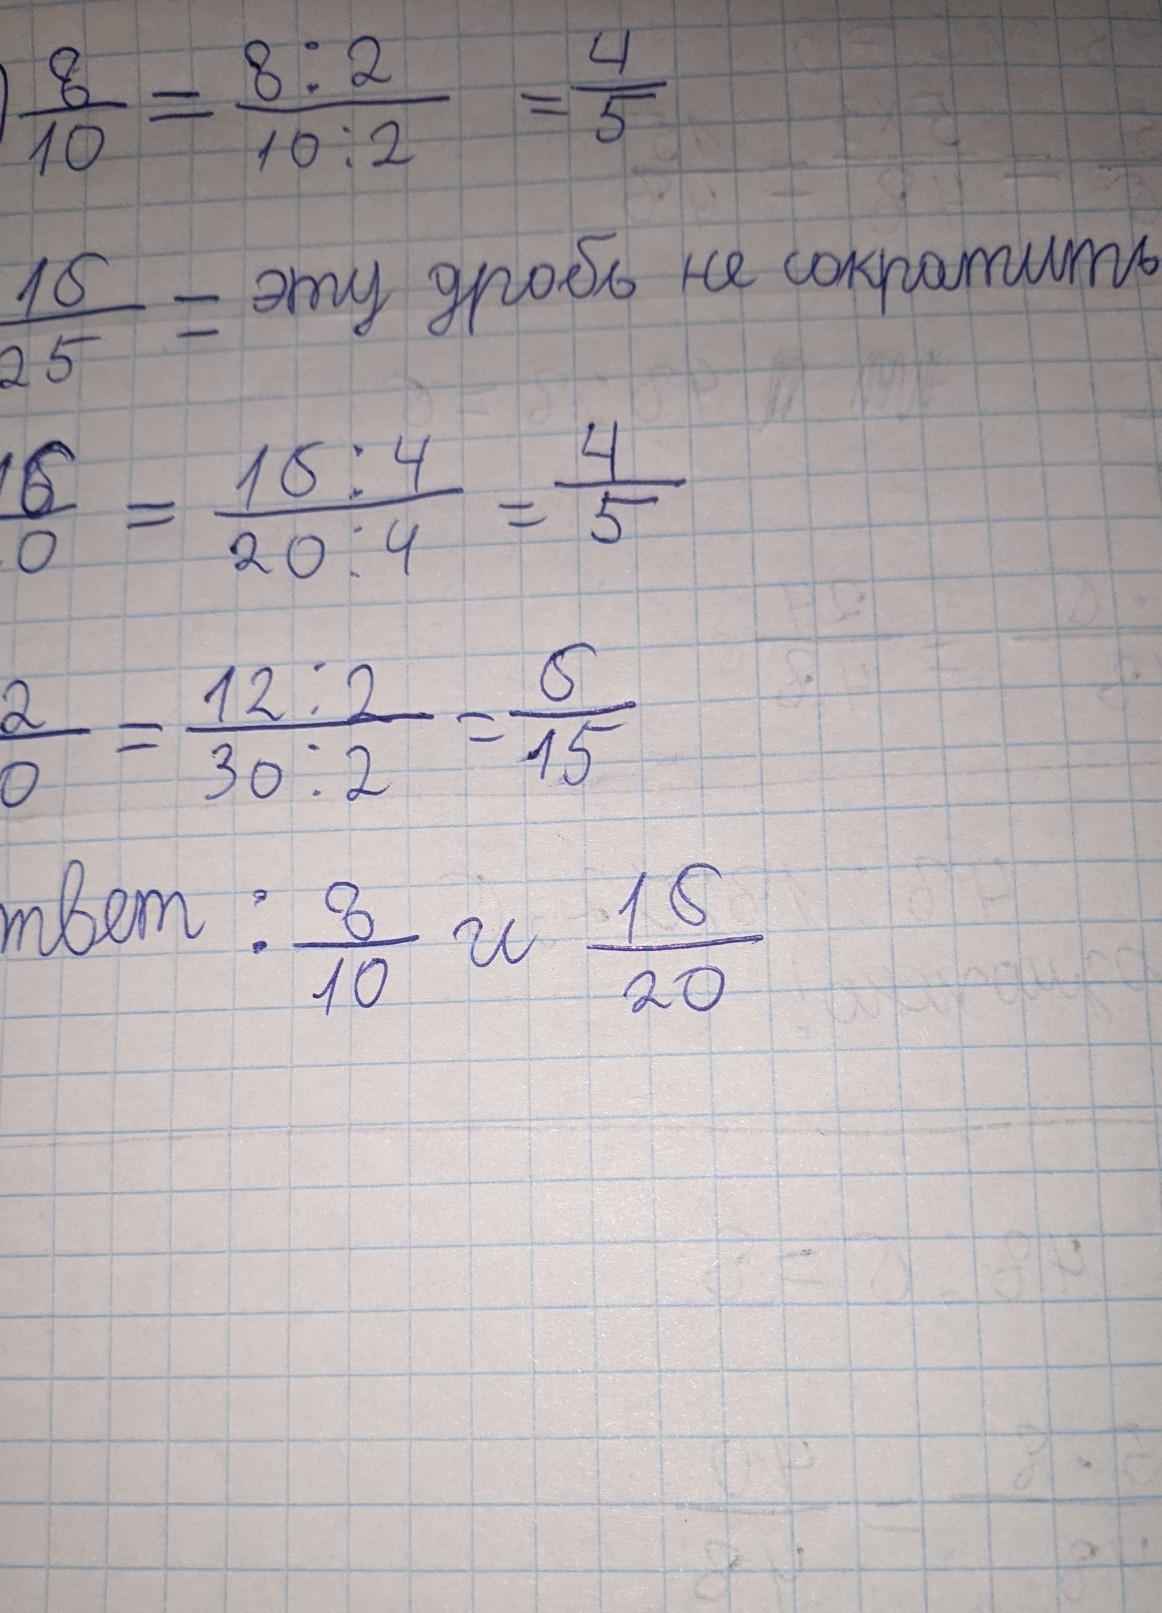 ) 8/10 = 8:2/10:2 = 4/5
16/25 = эту дробь не сократить
16/0 = 16:4/20:4 = 4/5
2/0 = 12:2/30:2 = 6/15
твет : 8/10 и 16/20